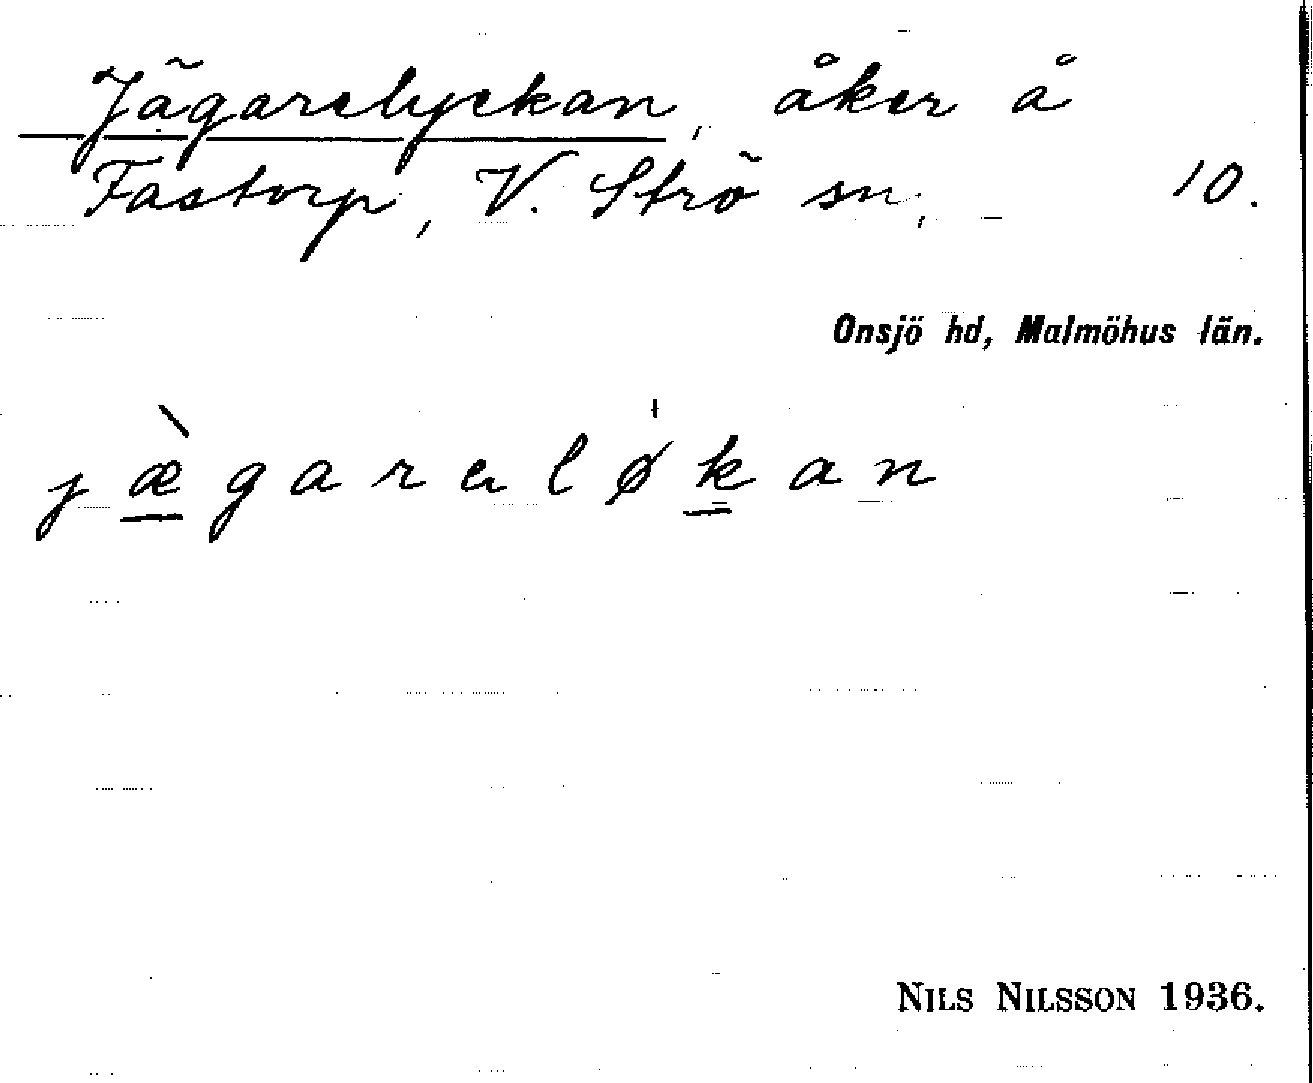 Jägarelyckan, åker å
Fastorp, V. Strö sn, 10.
Onsjö hd, Malmöhus län.
jæ̀garaløkan
NILS NILSSON 1936.